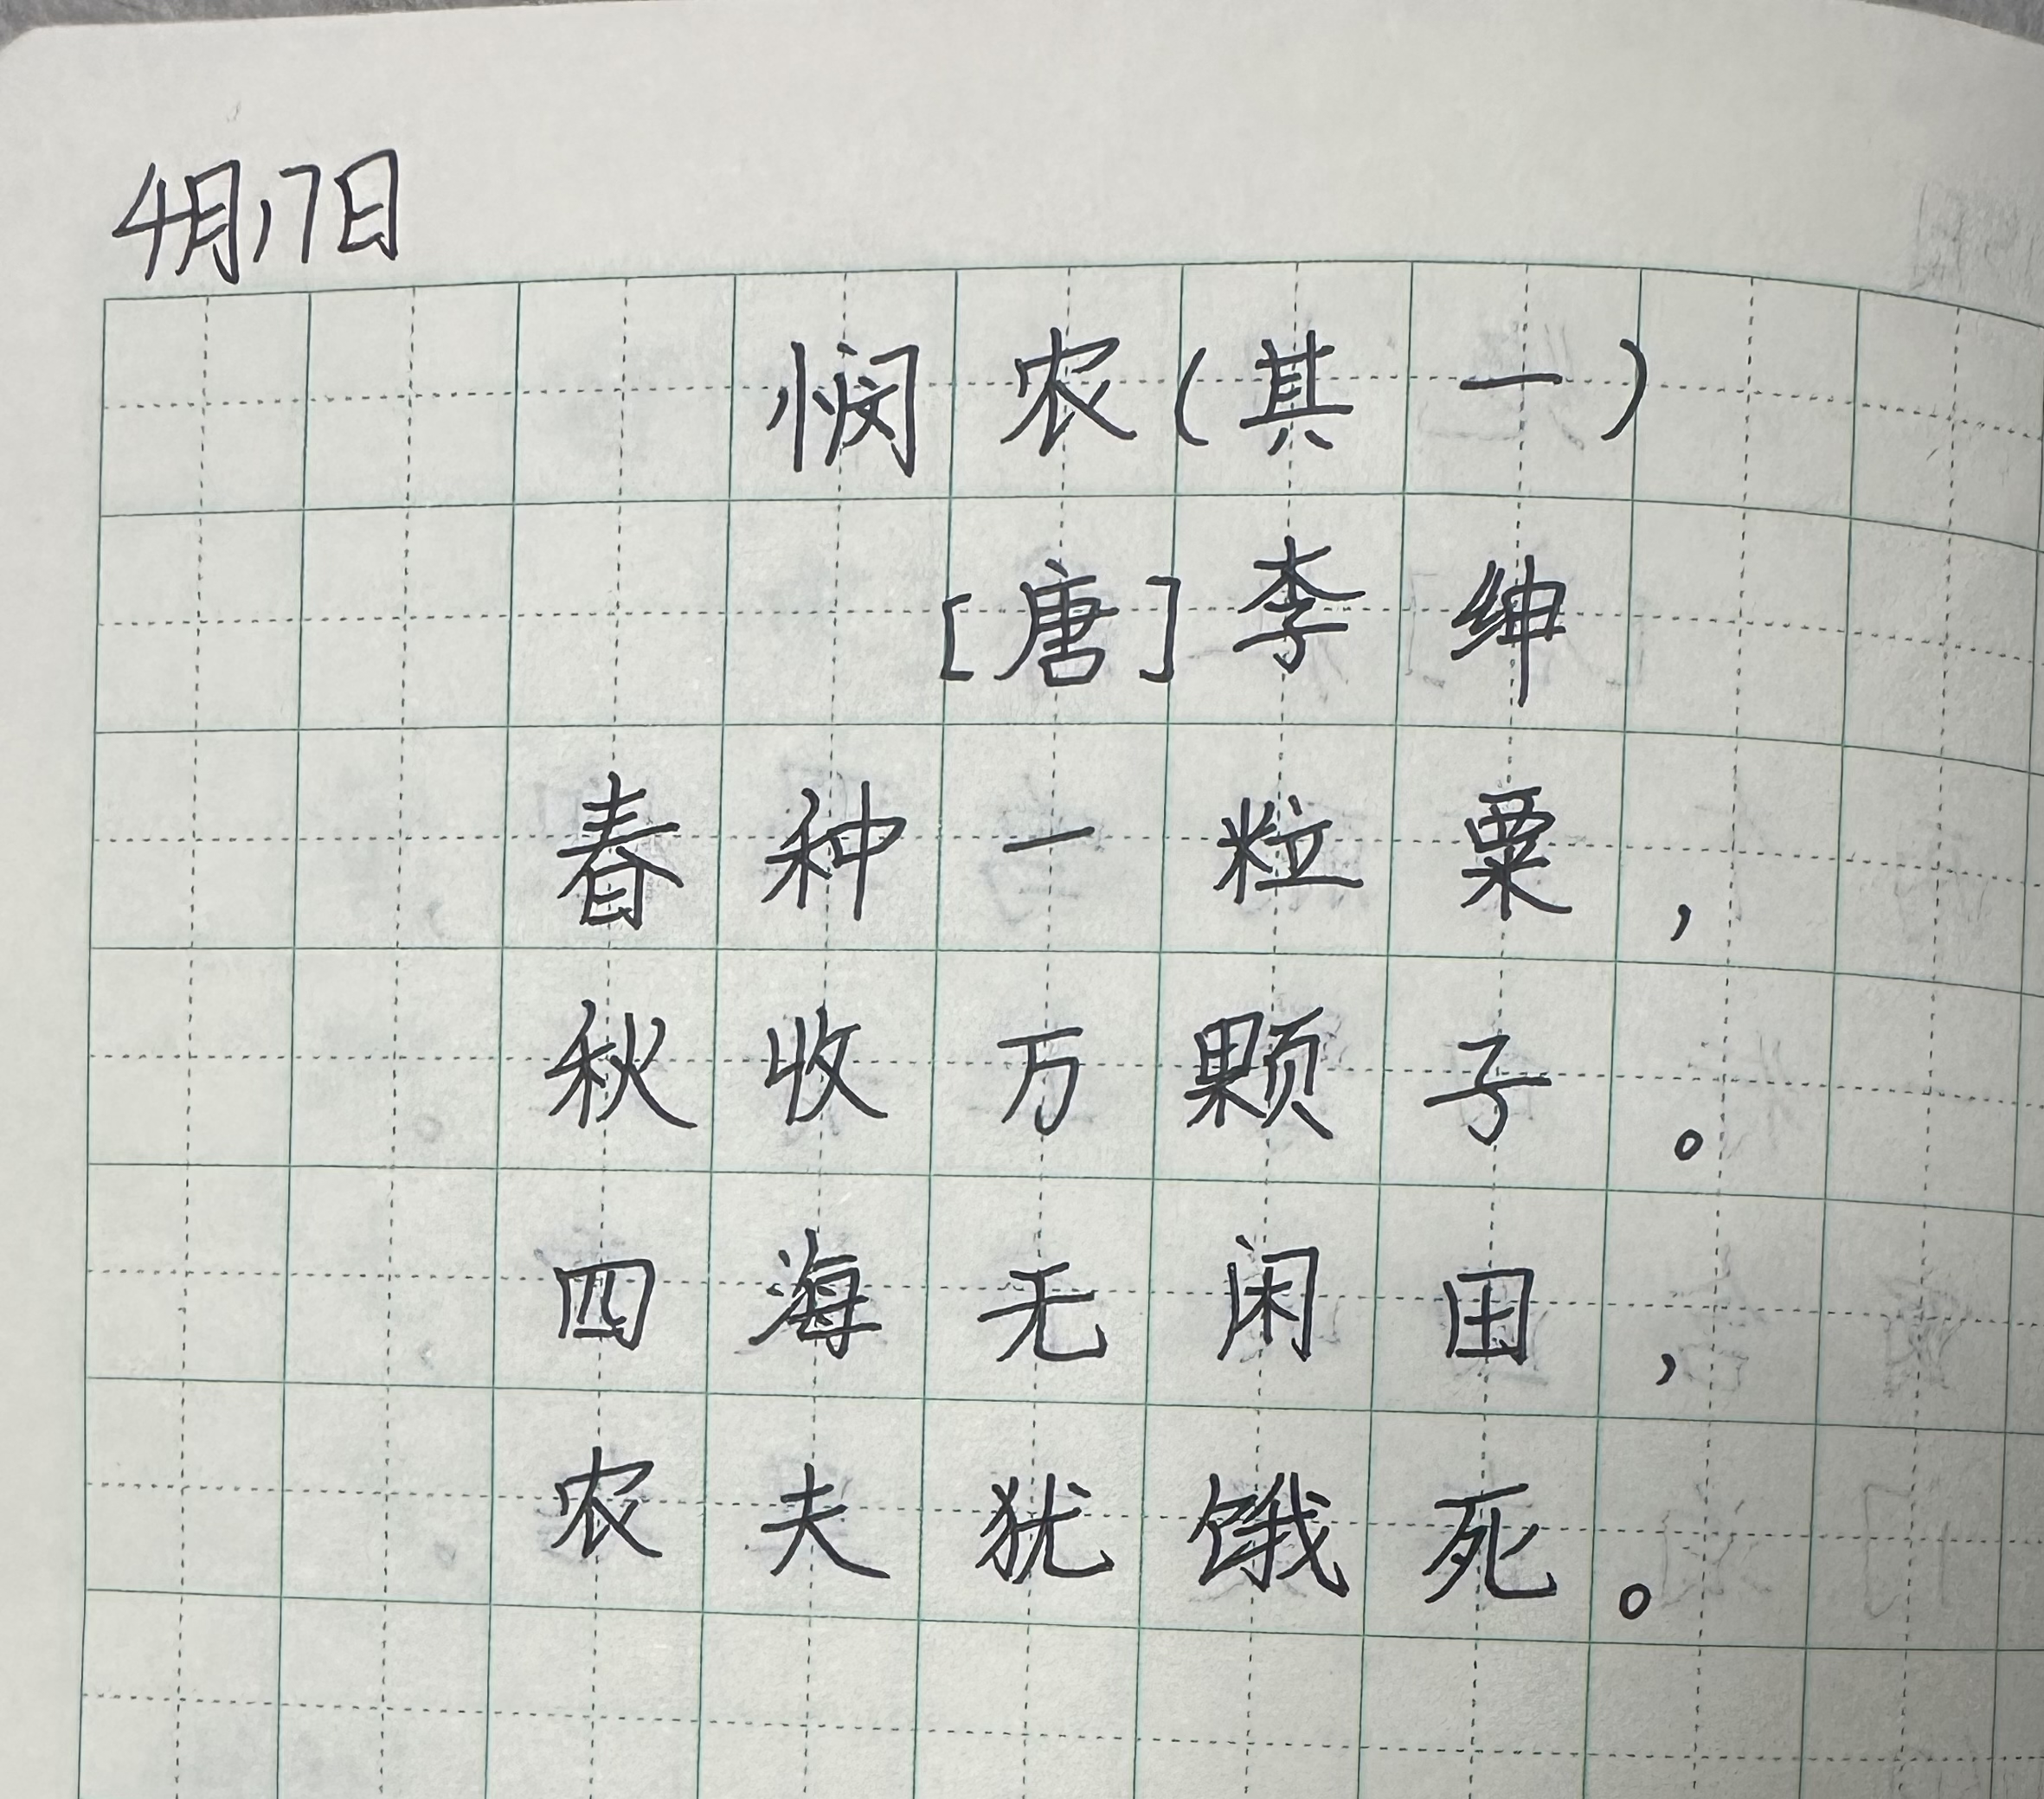 4月17日
悯农(其一)
[唐]李绅
春种一粒粟，
秋收万颗子。
四海无闲田，
农夫犹饿死。